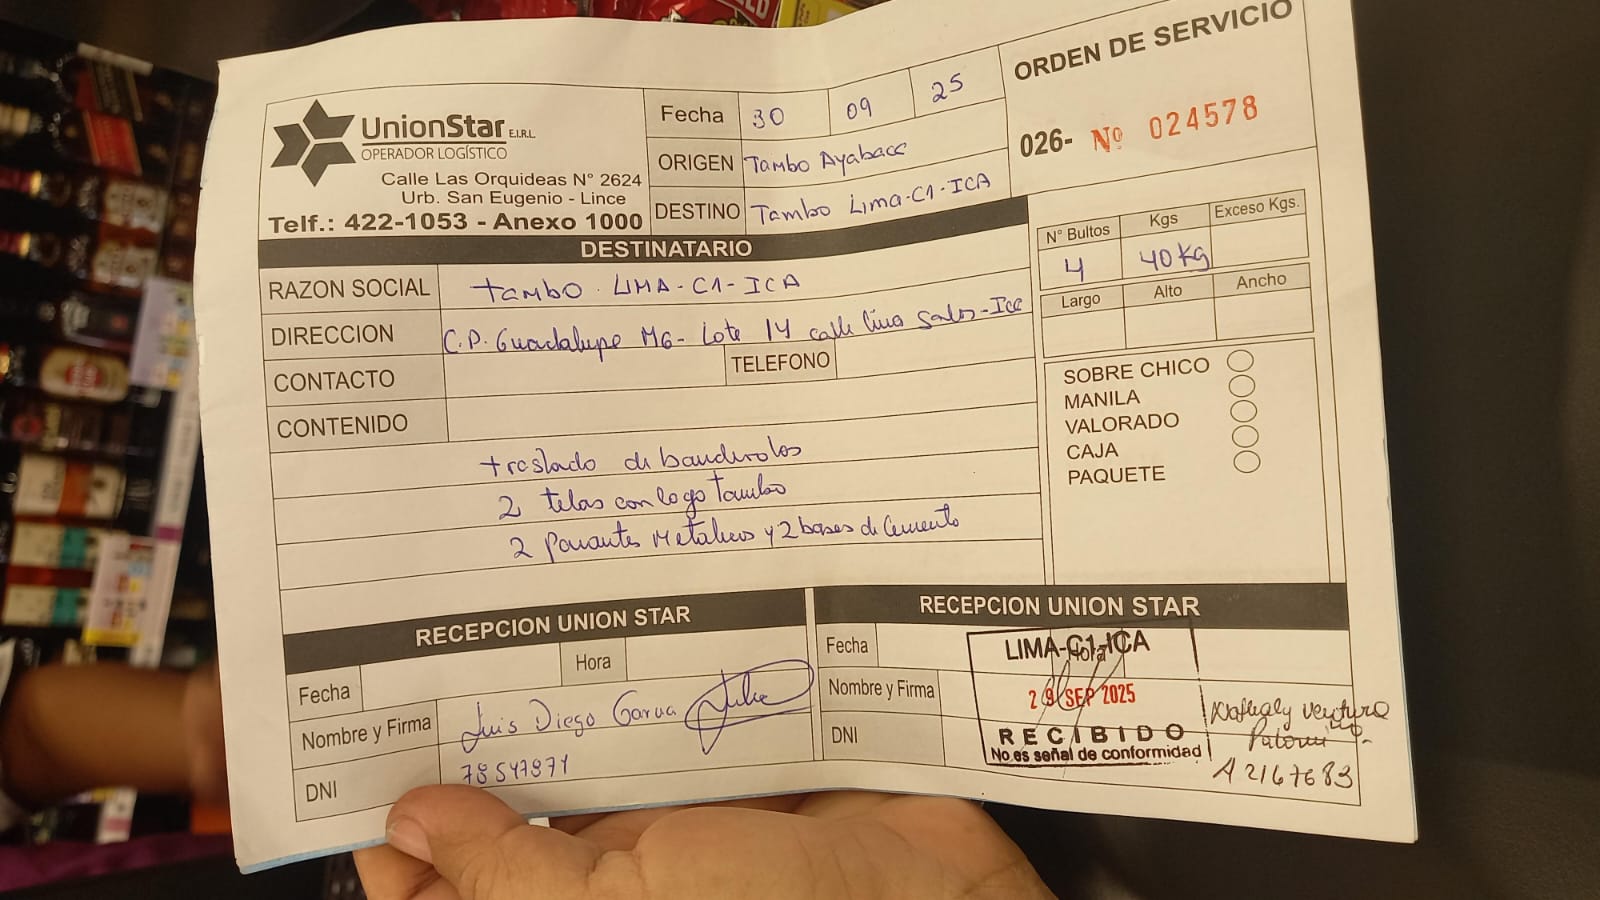 UnionStar E.I.R.L.
OPERADOR LOGÍSTICO
Calle Las Orquideas N° 2624
Urb. San Eugenio - Lince
Telf.: 422-1053 - Anexo 1000
Fecha 30 09 25
ORIGEN Tambo Ayabaca
DESTINO Tambo Lima-C1-ICA
ORDEN DE SERVICIO
026- Nº 024578
DESTINATARIO
RAZON SOCIAL tambo LIMA-C1-ICA
DIRECCION C.P. Guadalupe M6- Lote 14 calle lino -Ica
CONTACTO
TELEFONO
CONTENIDO
traslado de banderolas
2 telas con logo Tambo
2 parantes Metalicos y 2 bases de Cemento
N° Bultos Kgs Exceso Kgs.
4 40 Kg
Largo Alto Ancho
SOBRE CHICO
MANILA
VALORADO
CAJA
PAQUETE
RECEPCION UNION STAR
Fecha Hora
Nombre y Firma Luis Diego Garcia
DNI 78547871
RECEPCION UNION STAR
Fecha Hora
Nombre y Firma
DNI
LIMA-C1-ICA
29 SEP 2025
RECIBIDO
No es señal de conformidad
Nathaly Ventura
Palomino
A2167683